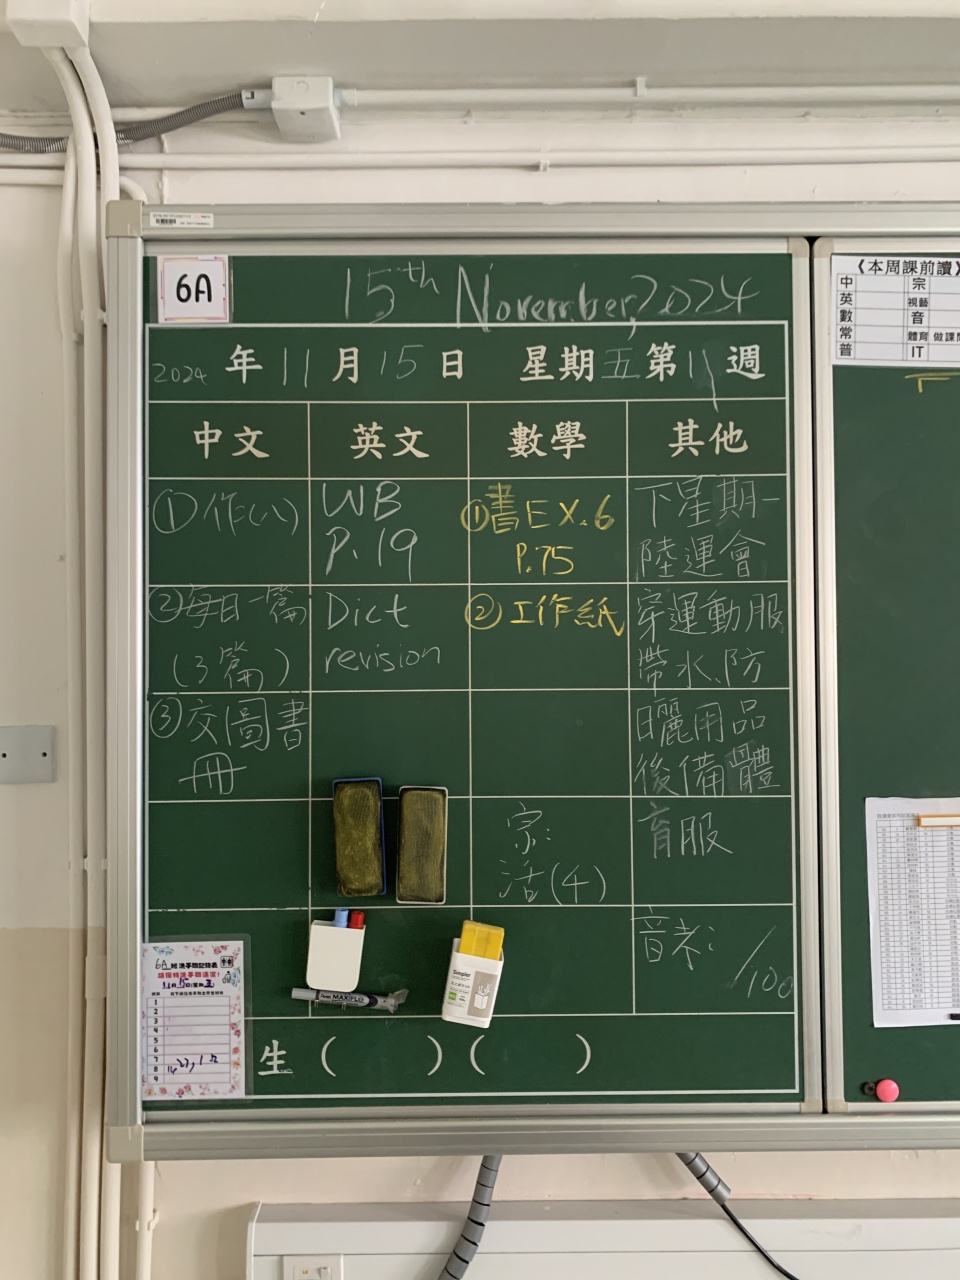 6A
15th November, 2024
2024 年 11 月 15 日 星期五 第 11 週
中文 英文 數學 其他
①作(八)
②每日一篇
(3篇)
③交圖書
冊
WB
P.19
Dict
revision
①書EX.6
P.75
②工作紙
宗:
活(4)
下星期一
陸運會
穿運動服
帶水、防
曬用品
後備體
育服
音考:
/100
生 ( ) ( )
6A
MAXIFLO
Simpler
1
2
3
4
5
6
7
8
9
《本周課前讀》
中 宗
英 視藝
數 音
常 體育
普 IT